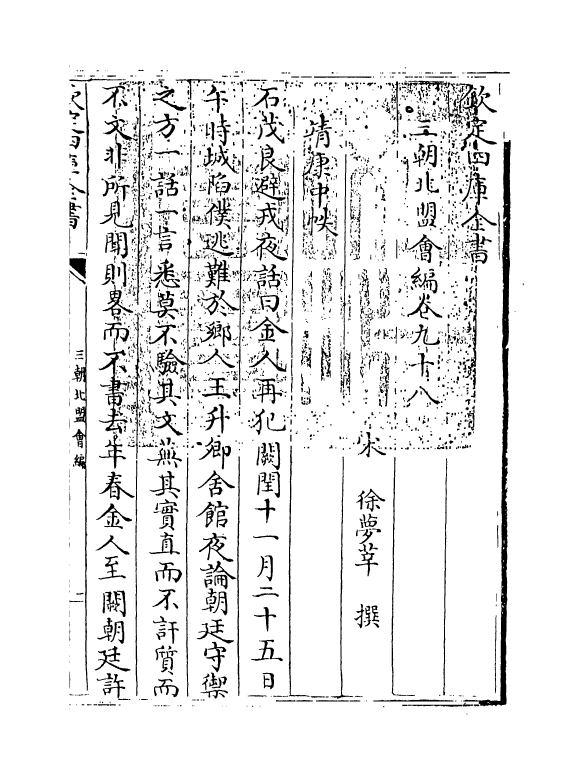 欽定四庫全書
三朝北盟會編卷九十八
宋　徐夢莘　撰
靖康中帙
石茂良避戎夜話曰金人再犯闕閏十一月二十五日
午時城陷僕逃難於鄉人王升卿舍館夜論朝廷守禦
之方一話一言悉莫不驗其文蕪其實直而不訐質而
不文非所見聞則畧而不書去年春金人至闕朝廷許
欽定四庫全書
三朝北盟會編